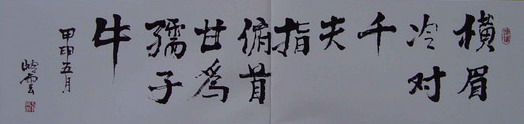 横眉
冷对
千
夫
指
俯首
甘為
孺子
牛
甲申五月